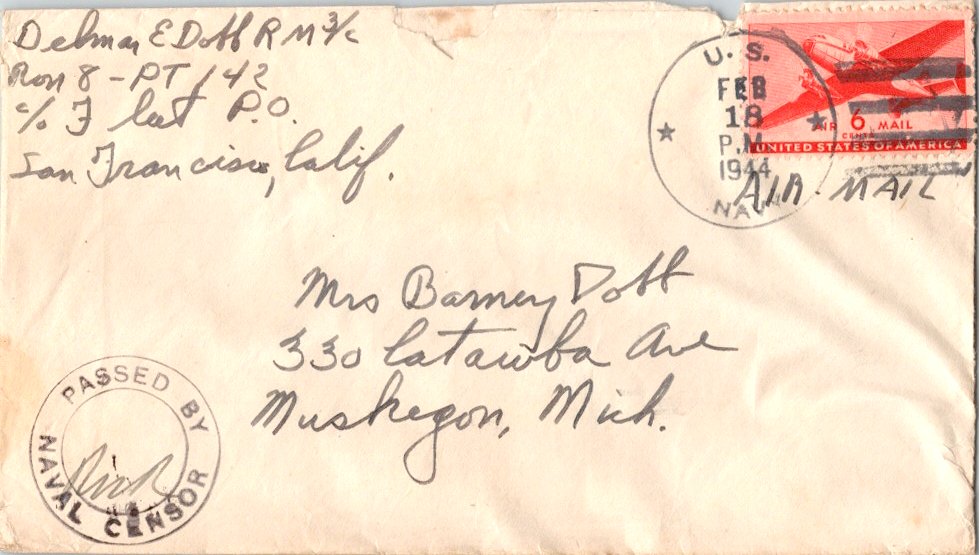 Delmar E Dobb RM 3/c
Ron 8 - PT 142
c/o Fleet P.O.
San Francisco, Calif.
U. S.
FEB
18
P.M.
1944
NAVY
AIR 6 MAIL
CENTS
UNITED STATES OF AMERICA
AIR MAIL
Mrs Barney Dobb
330 Catawba Ave
Muskegon, Mich.
PASSED BY
NAVAL CENSOR